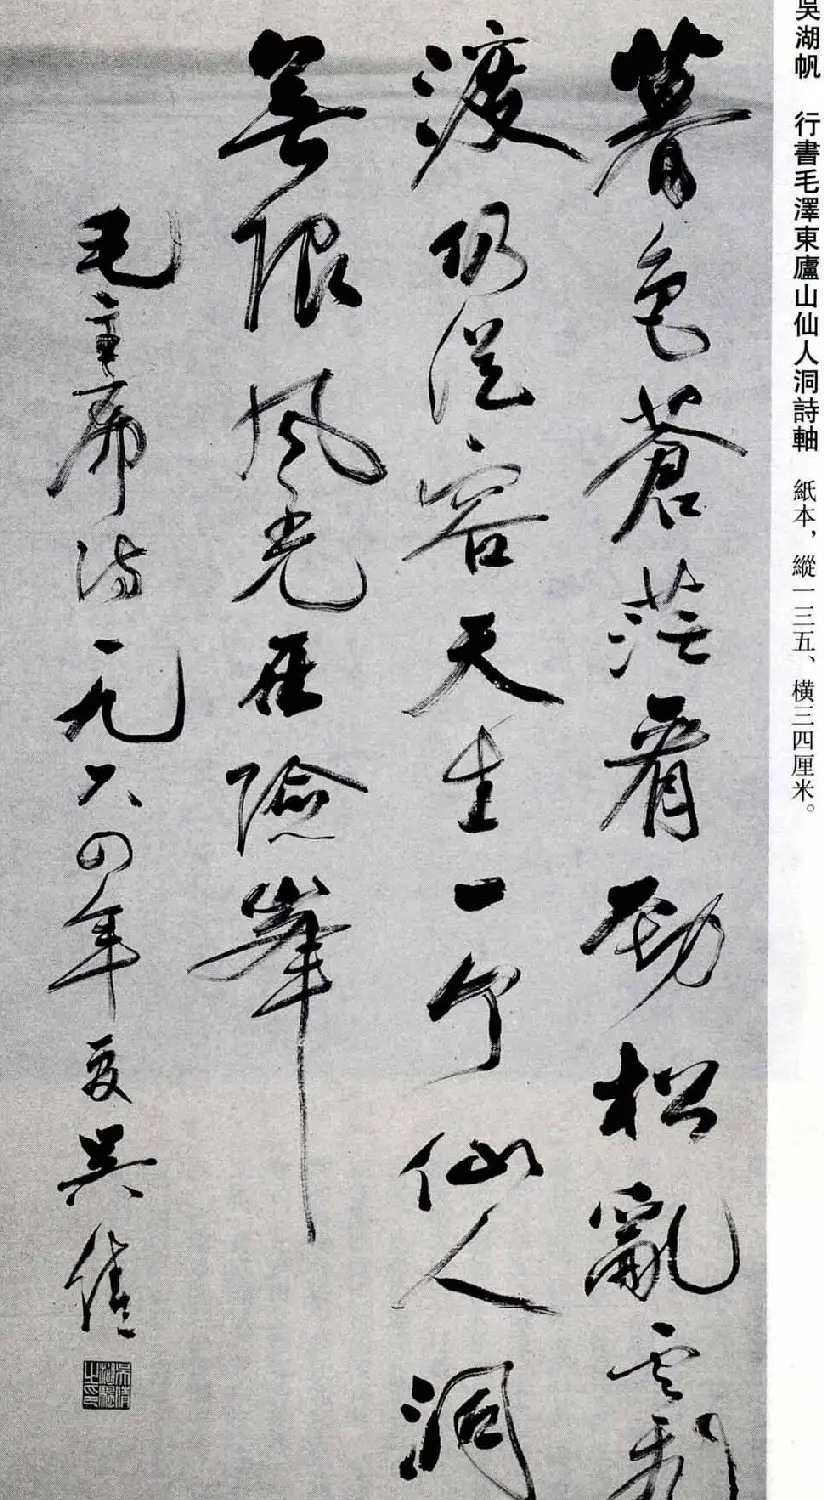 吳湖帆 行書毛澤東廬山仙人洞詩軸 紙本，縱一三五、橫三四厘米。
暮色蒼茫看勁松亂雲飛
渡仍從容天生一个仙人洞
無限風光在險峯
毛主席詩一九六四年夏吳倩